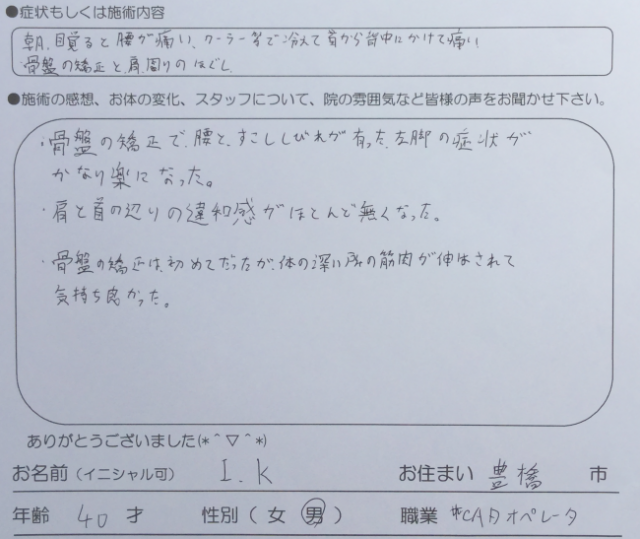 ●症状もしくは施術内容
朝、目覚ると腰が痛い、クーラー等で冷えて首から背中にかけて痛い
骨盤の矯正と肩周りのほぐし
●施術の感想、お体の変化、スタッフについて、院の雰囲気など皆様の声をお聞かせ下さい。
・骨盤の矯正で、腰と、すこししびれが有った、左脚の症状が
かなり楽になった。
・肩と首の辺りの違和感がほとんど無くなった。
・骨盤の矯正は、初めてだったが、体の深い所の筋肉が伸ばされて
気持ち良かった。
ありがとうございました(*＾▽＾*)
お名前(イニシャル可) I.K お住まい 豊橋 市
年齢 40 才 性別 ( 女 男 ) 職業 CADオペレータ